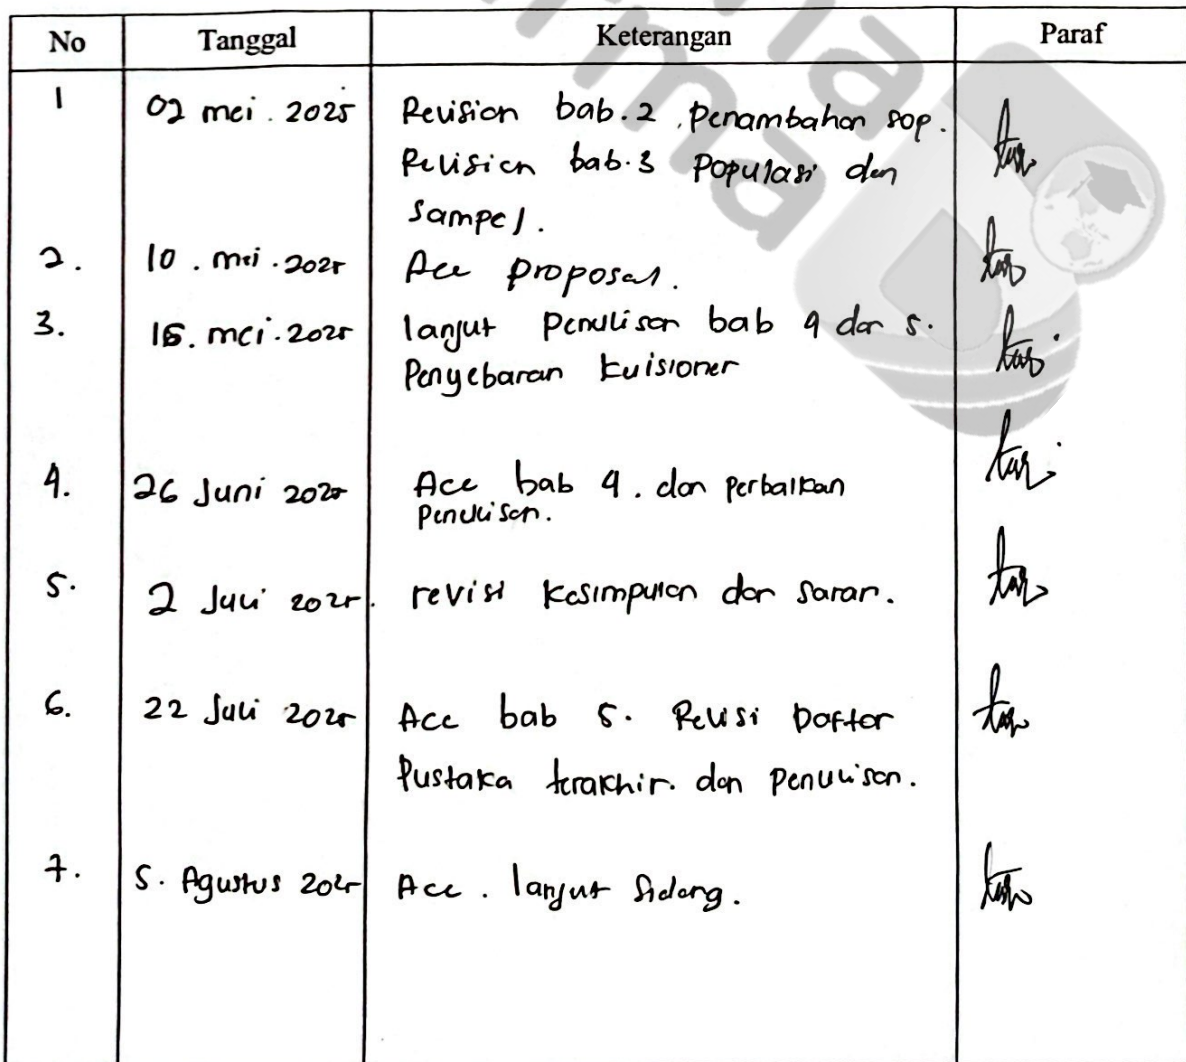 No Tanggal Keterangan Paraf
1 02 mei . 2025 Revision bab. 2 . Penambahan sop.
Revision bab. 3 Populasi dan
Sampel.
2. 10 . mei . 2025 Acc proposal.
3. 15. mei . 2025 lanjut Penulisan bab 4 dan 5.
Penyebaran kuisioner
4. 26 Juni 2025 Acc bab 4 . dan Perbaikan
Penulisan.
5. 2 Juli 2025. revisi kesimpulan dan saran.
6. 22 Juli 2025 Acc bab 5. Revisi Daftar
Pustaka terakhir. dan Penulisan.
7. 5. Agustus 2025 Acc . lanjut Sidang.